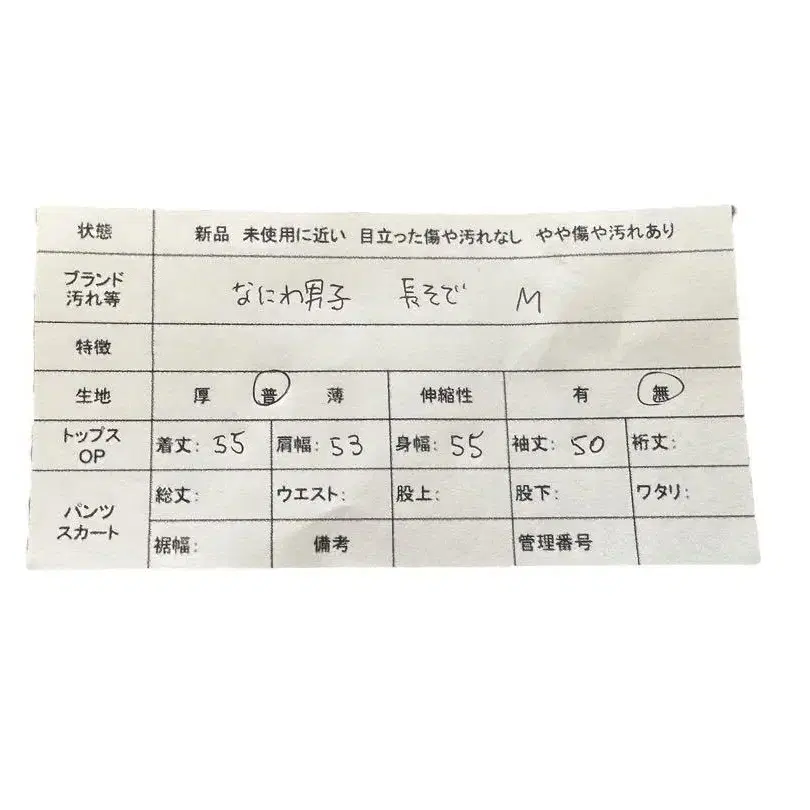 状態 新品 未使用に近い 目立った傷や汚れなし やや傷や汚れあり
ブランド
汚れ等 なにわ男子 長そで M
特徴
生地 厚 普 薄 伸縮性 有 無
トップス
OP 着丈: 55 肩幅: 53 身幅: 55 袖丈: 50 裄丈:
パンツ
スカート 総丈: ウエスト: 股上: 股下: ワタリ:
裾幅: 備考 管理番号